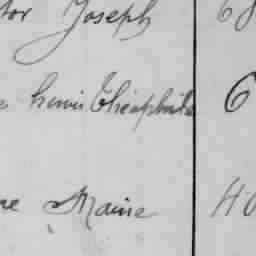 tor Joseph 68
Louis Théophile 6
ne Marie 40